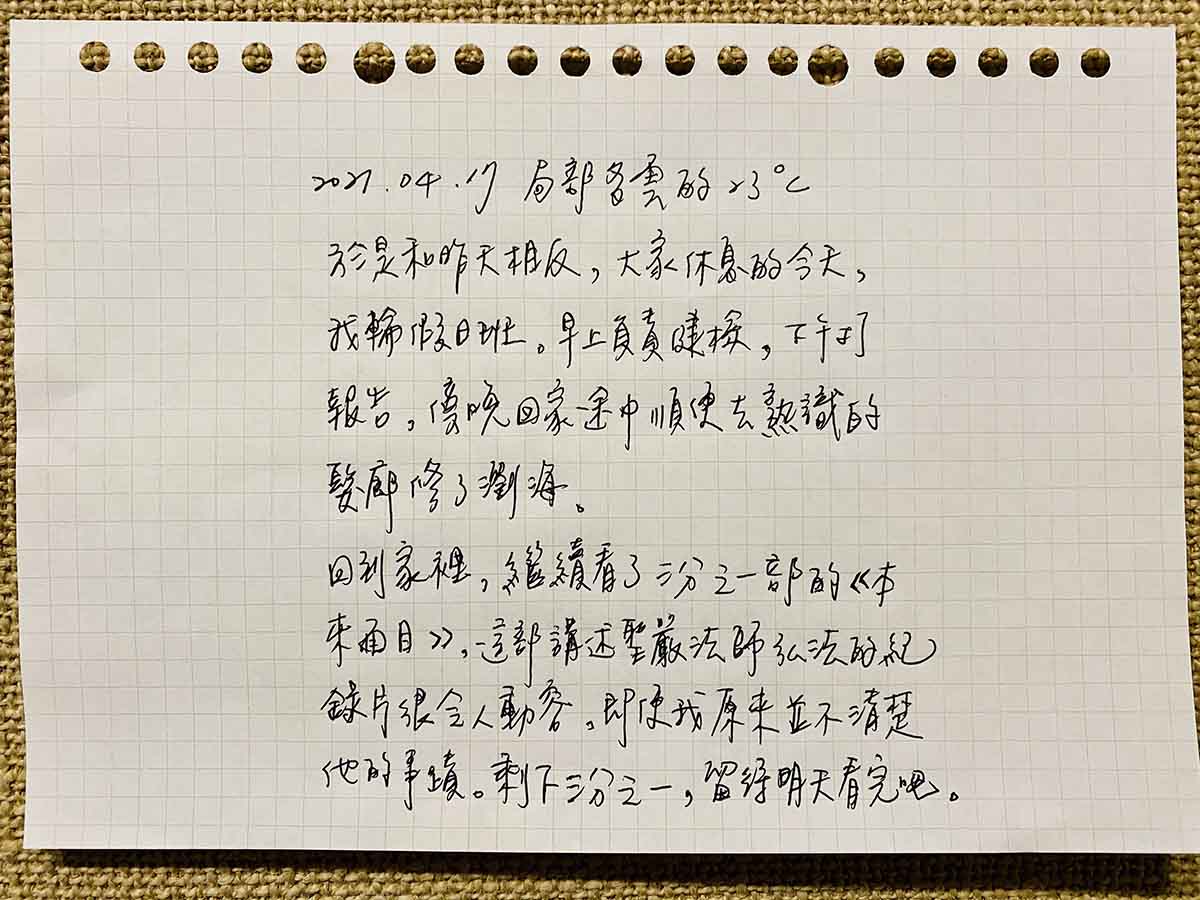 2021.04.17 局部多雲的23°C
於是和昨天相反，大家休息的今天，
我輪假日班。早上負責健檢，下午打
報告，傍晚回家途中順便去熟識的
髮廊修了瀏海。
回到家裡，繼續看了三分之一部的《本
來面目》，這部講述聖嚴法師弘法的紀
錄片很令人動容，即使我原來並不清楚
他的事蹟。剩下三分之一，留待明天看完吧。